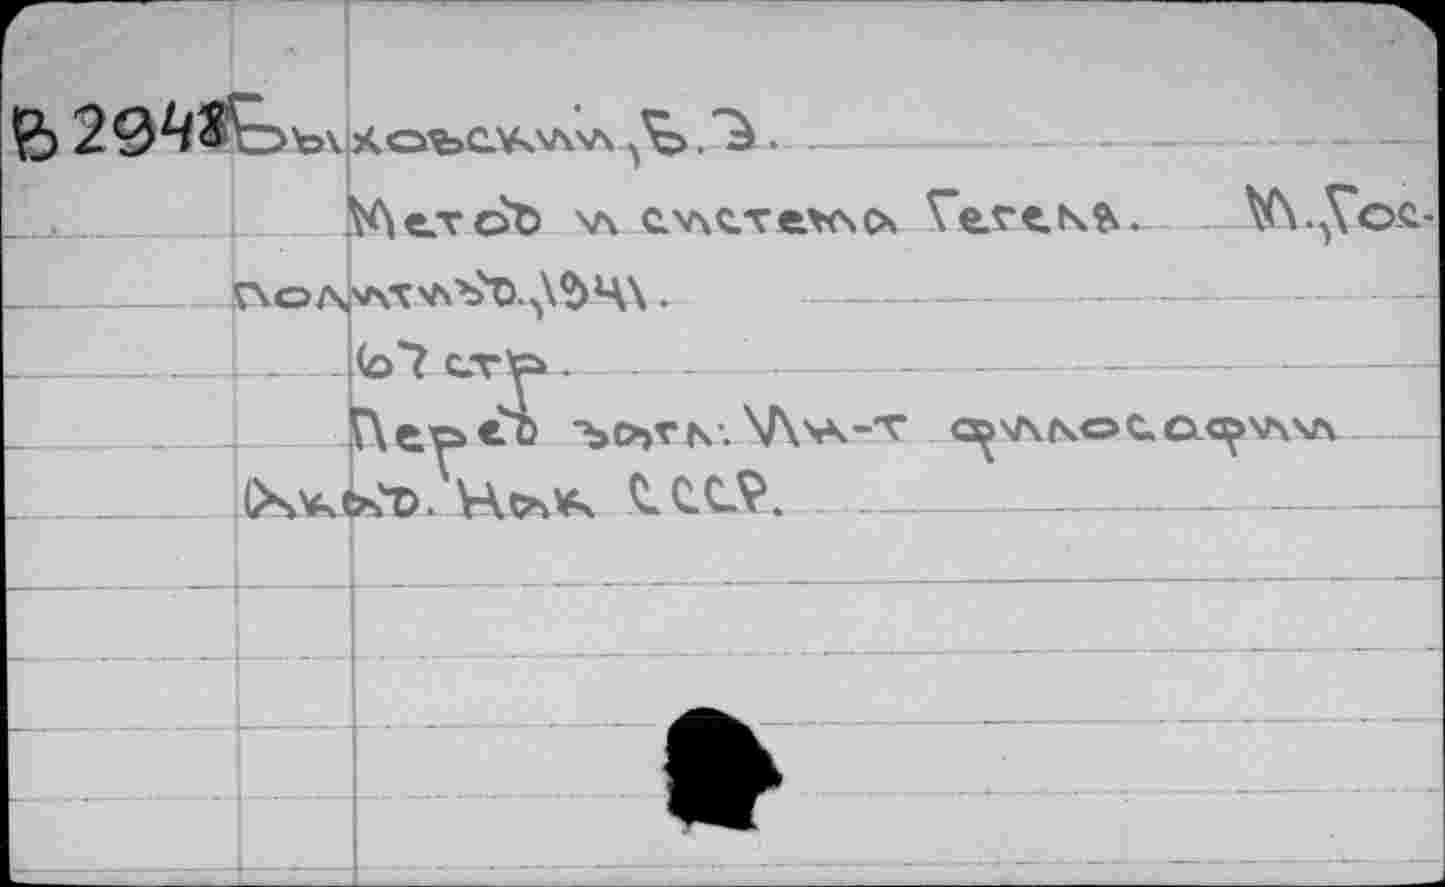 В2948 Быховский, Б.Э.
Метод и система Гегеля. М., Гос-
политизд., 1941.
67 стр.
Перед загл.: Ин-т философии
Акад. Наук СССР.